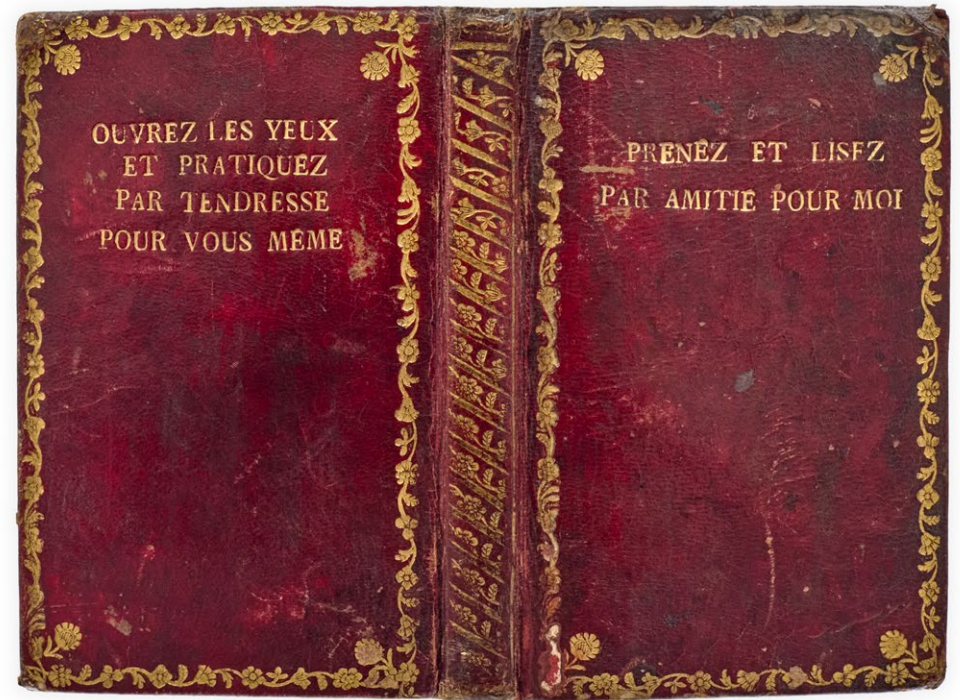 OUVREZ LES YEUX
ET PRATIQUEZ
PAR TENDRESSE
POUR VOUS MÊME
PRENEZ ET LISEZ
PAR AMITIÉ POUR MOI